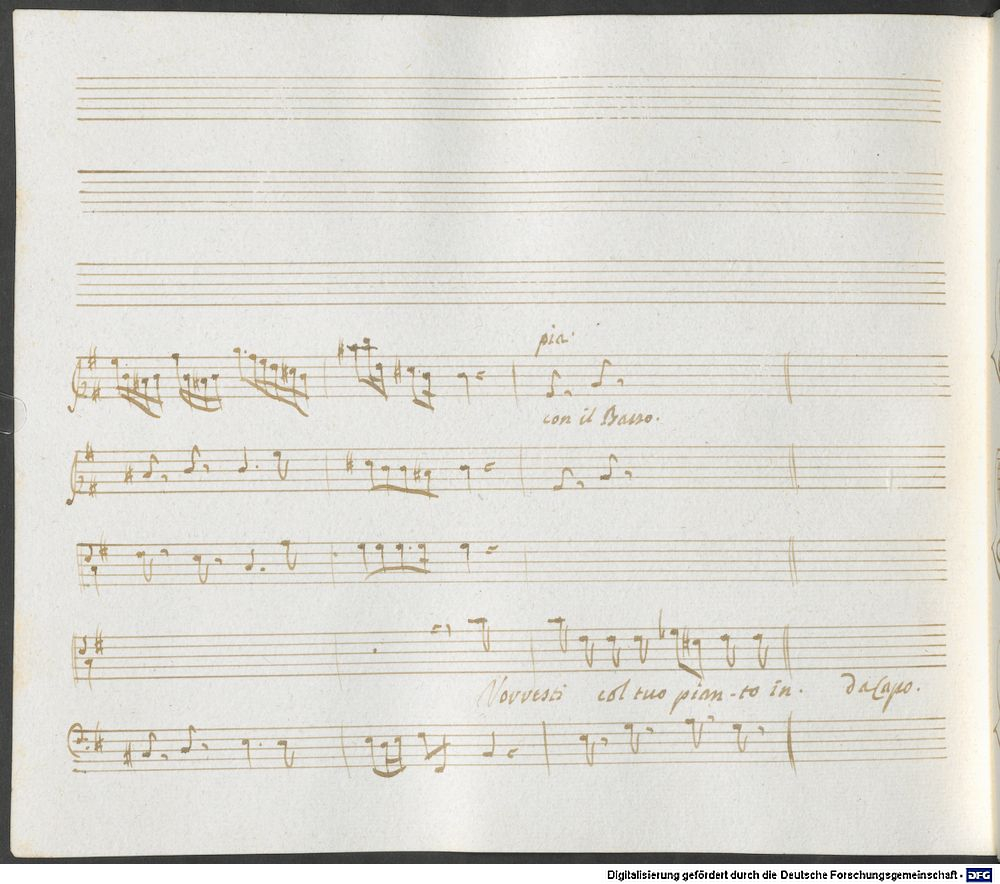 pia.
con il Basso.
Vorresti col tuo pian-to in. Da Capo.
Digitalisierung gefördert durch die Deutsche Forschungsgemeinschaft - DFG